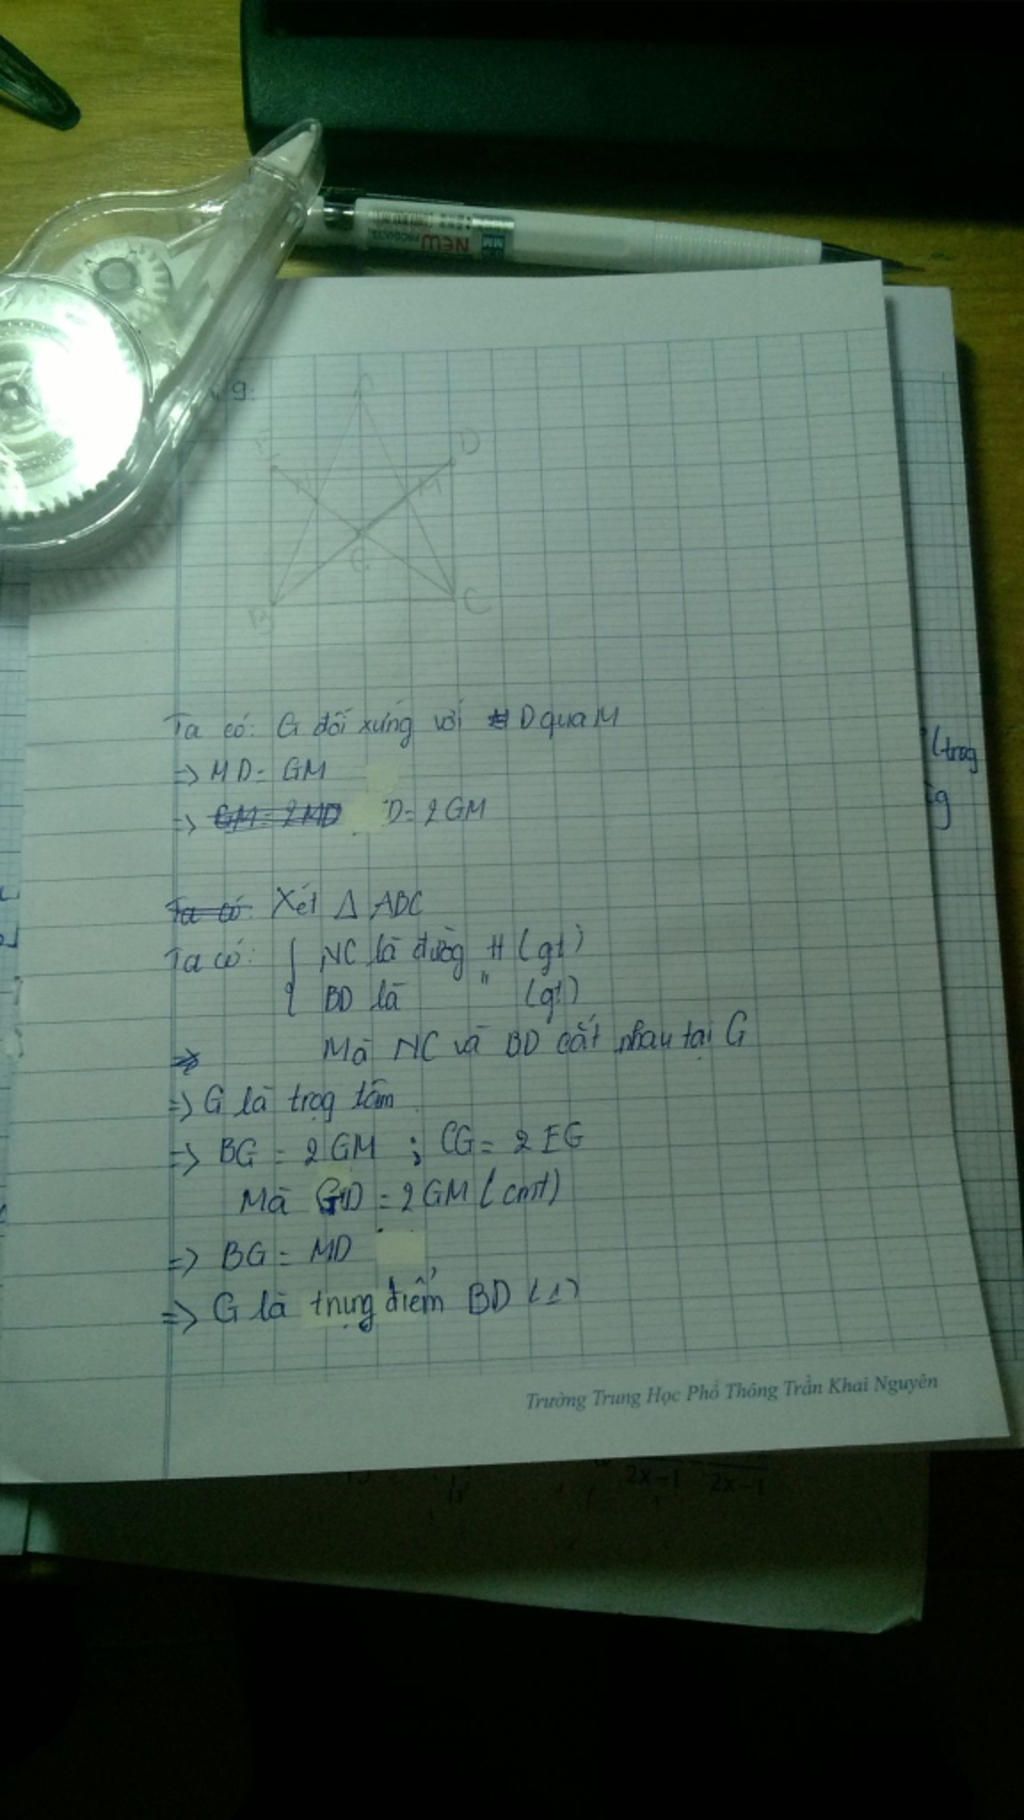 NEW
PRODUCTS
MM
9.
A
E
D
N
M
G
B
C
Ta có: G đối xứng với D qua M
=> MD = GM
=> GM = 2MD D = 2GM
(trog
g
Ta có: Xét Δ ABC
Ta có: { NC là đường tt (gt)
BD là " (gt)
=> Mà NC và BD cắt nhau tại G
=> G là trog tâm
=> BG = 2GM ; CG = 2EG
Mà GD = 2GM (cmt)
=> BG = MD
=> G là trung điểm BD (1)
Trường Trung Học Phổ Thông Trần Khai Nguyên
2x-1 2x-1